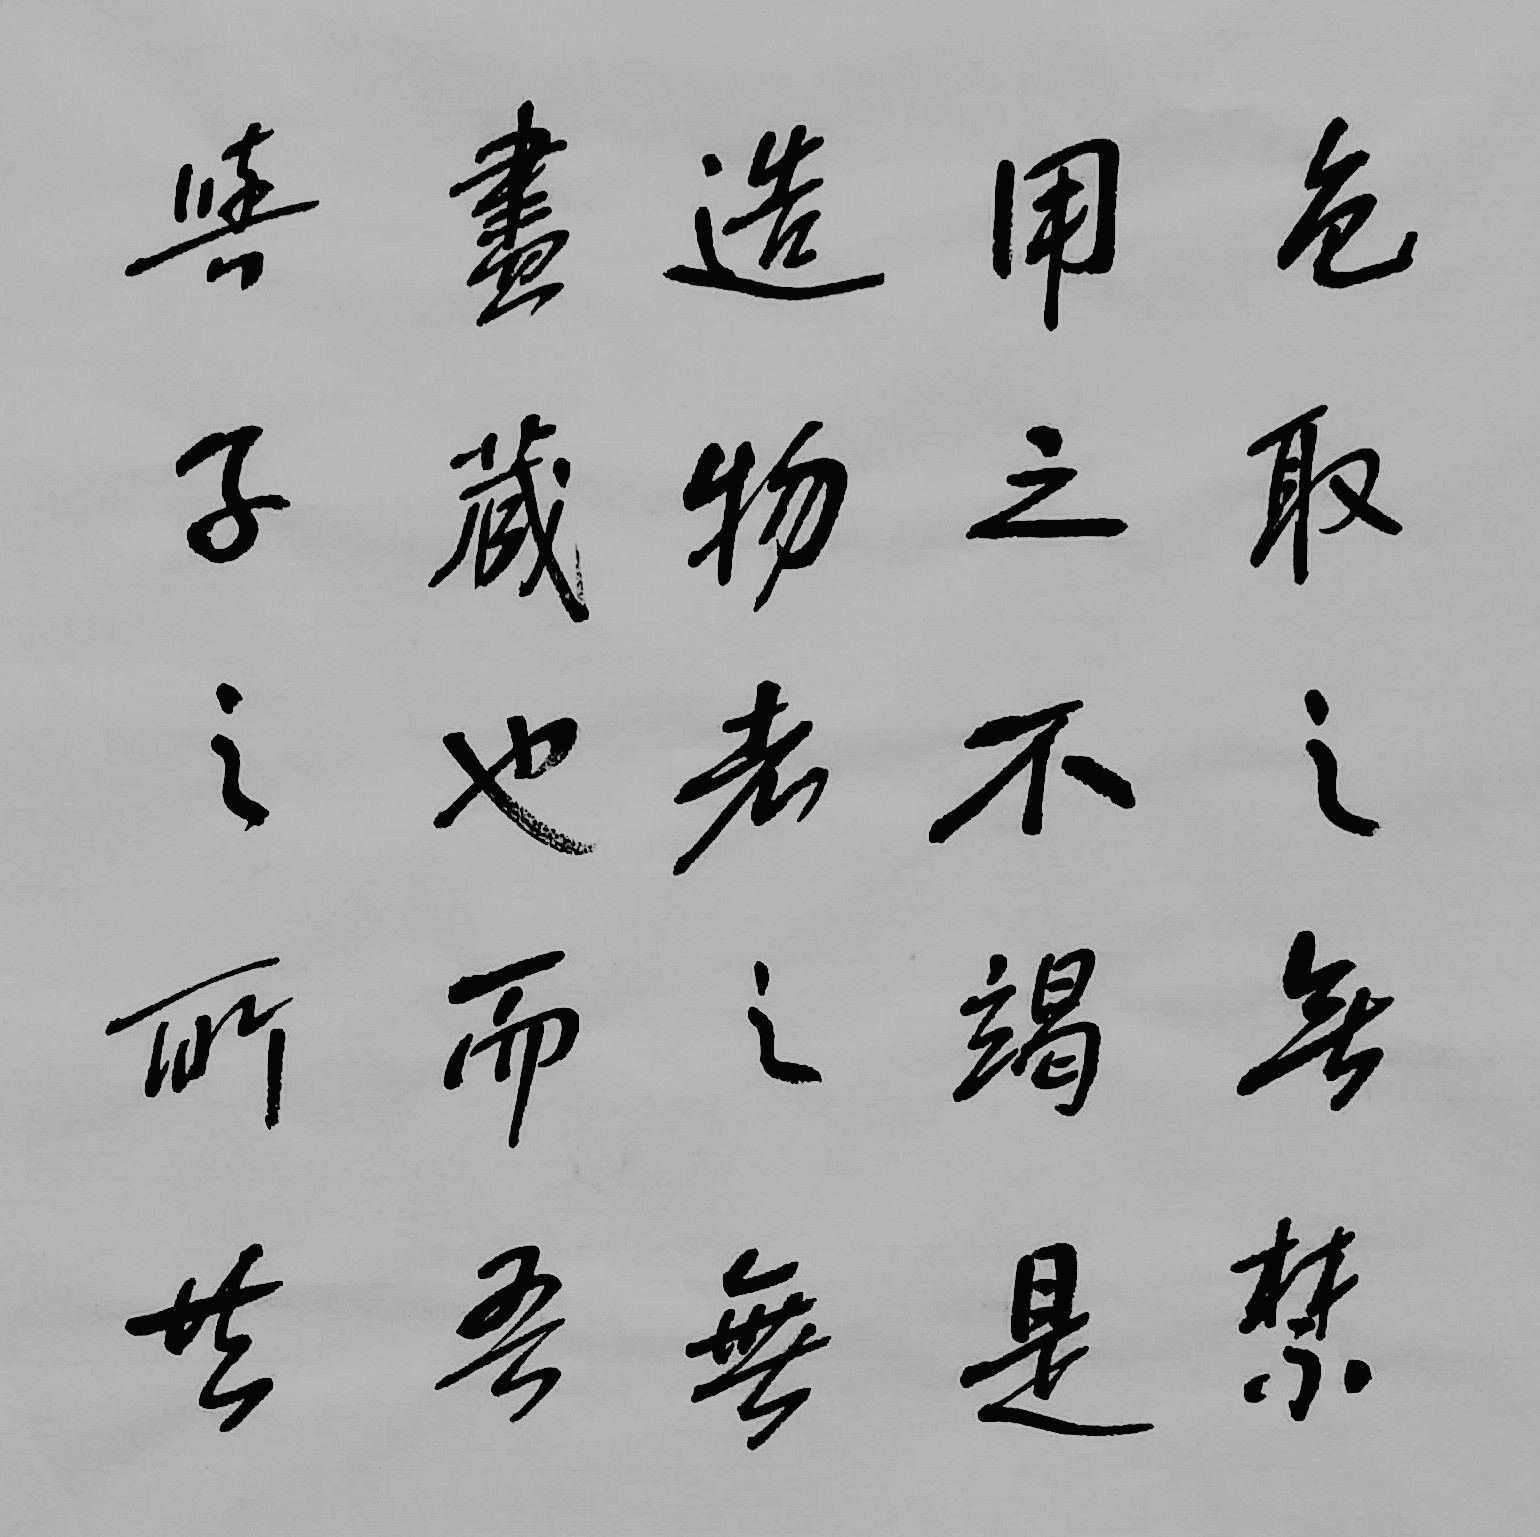 色取之無禁
用之不竭是
造物者之無
盡藏也而吾
與子之所共